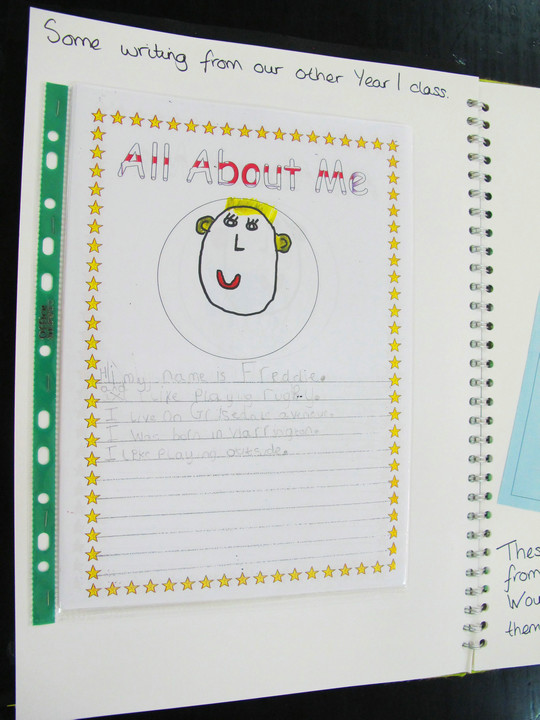 Some writing from our other Year 1 class.
All About Me
Hi my name is Freddie.
like Playing
I live on avenue.
I was born in Warrington.
I Like Playing outside.
Thes
from
Wou
them